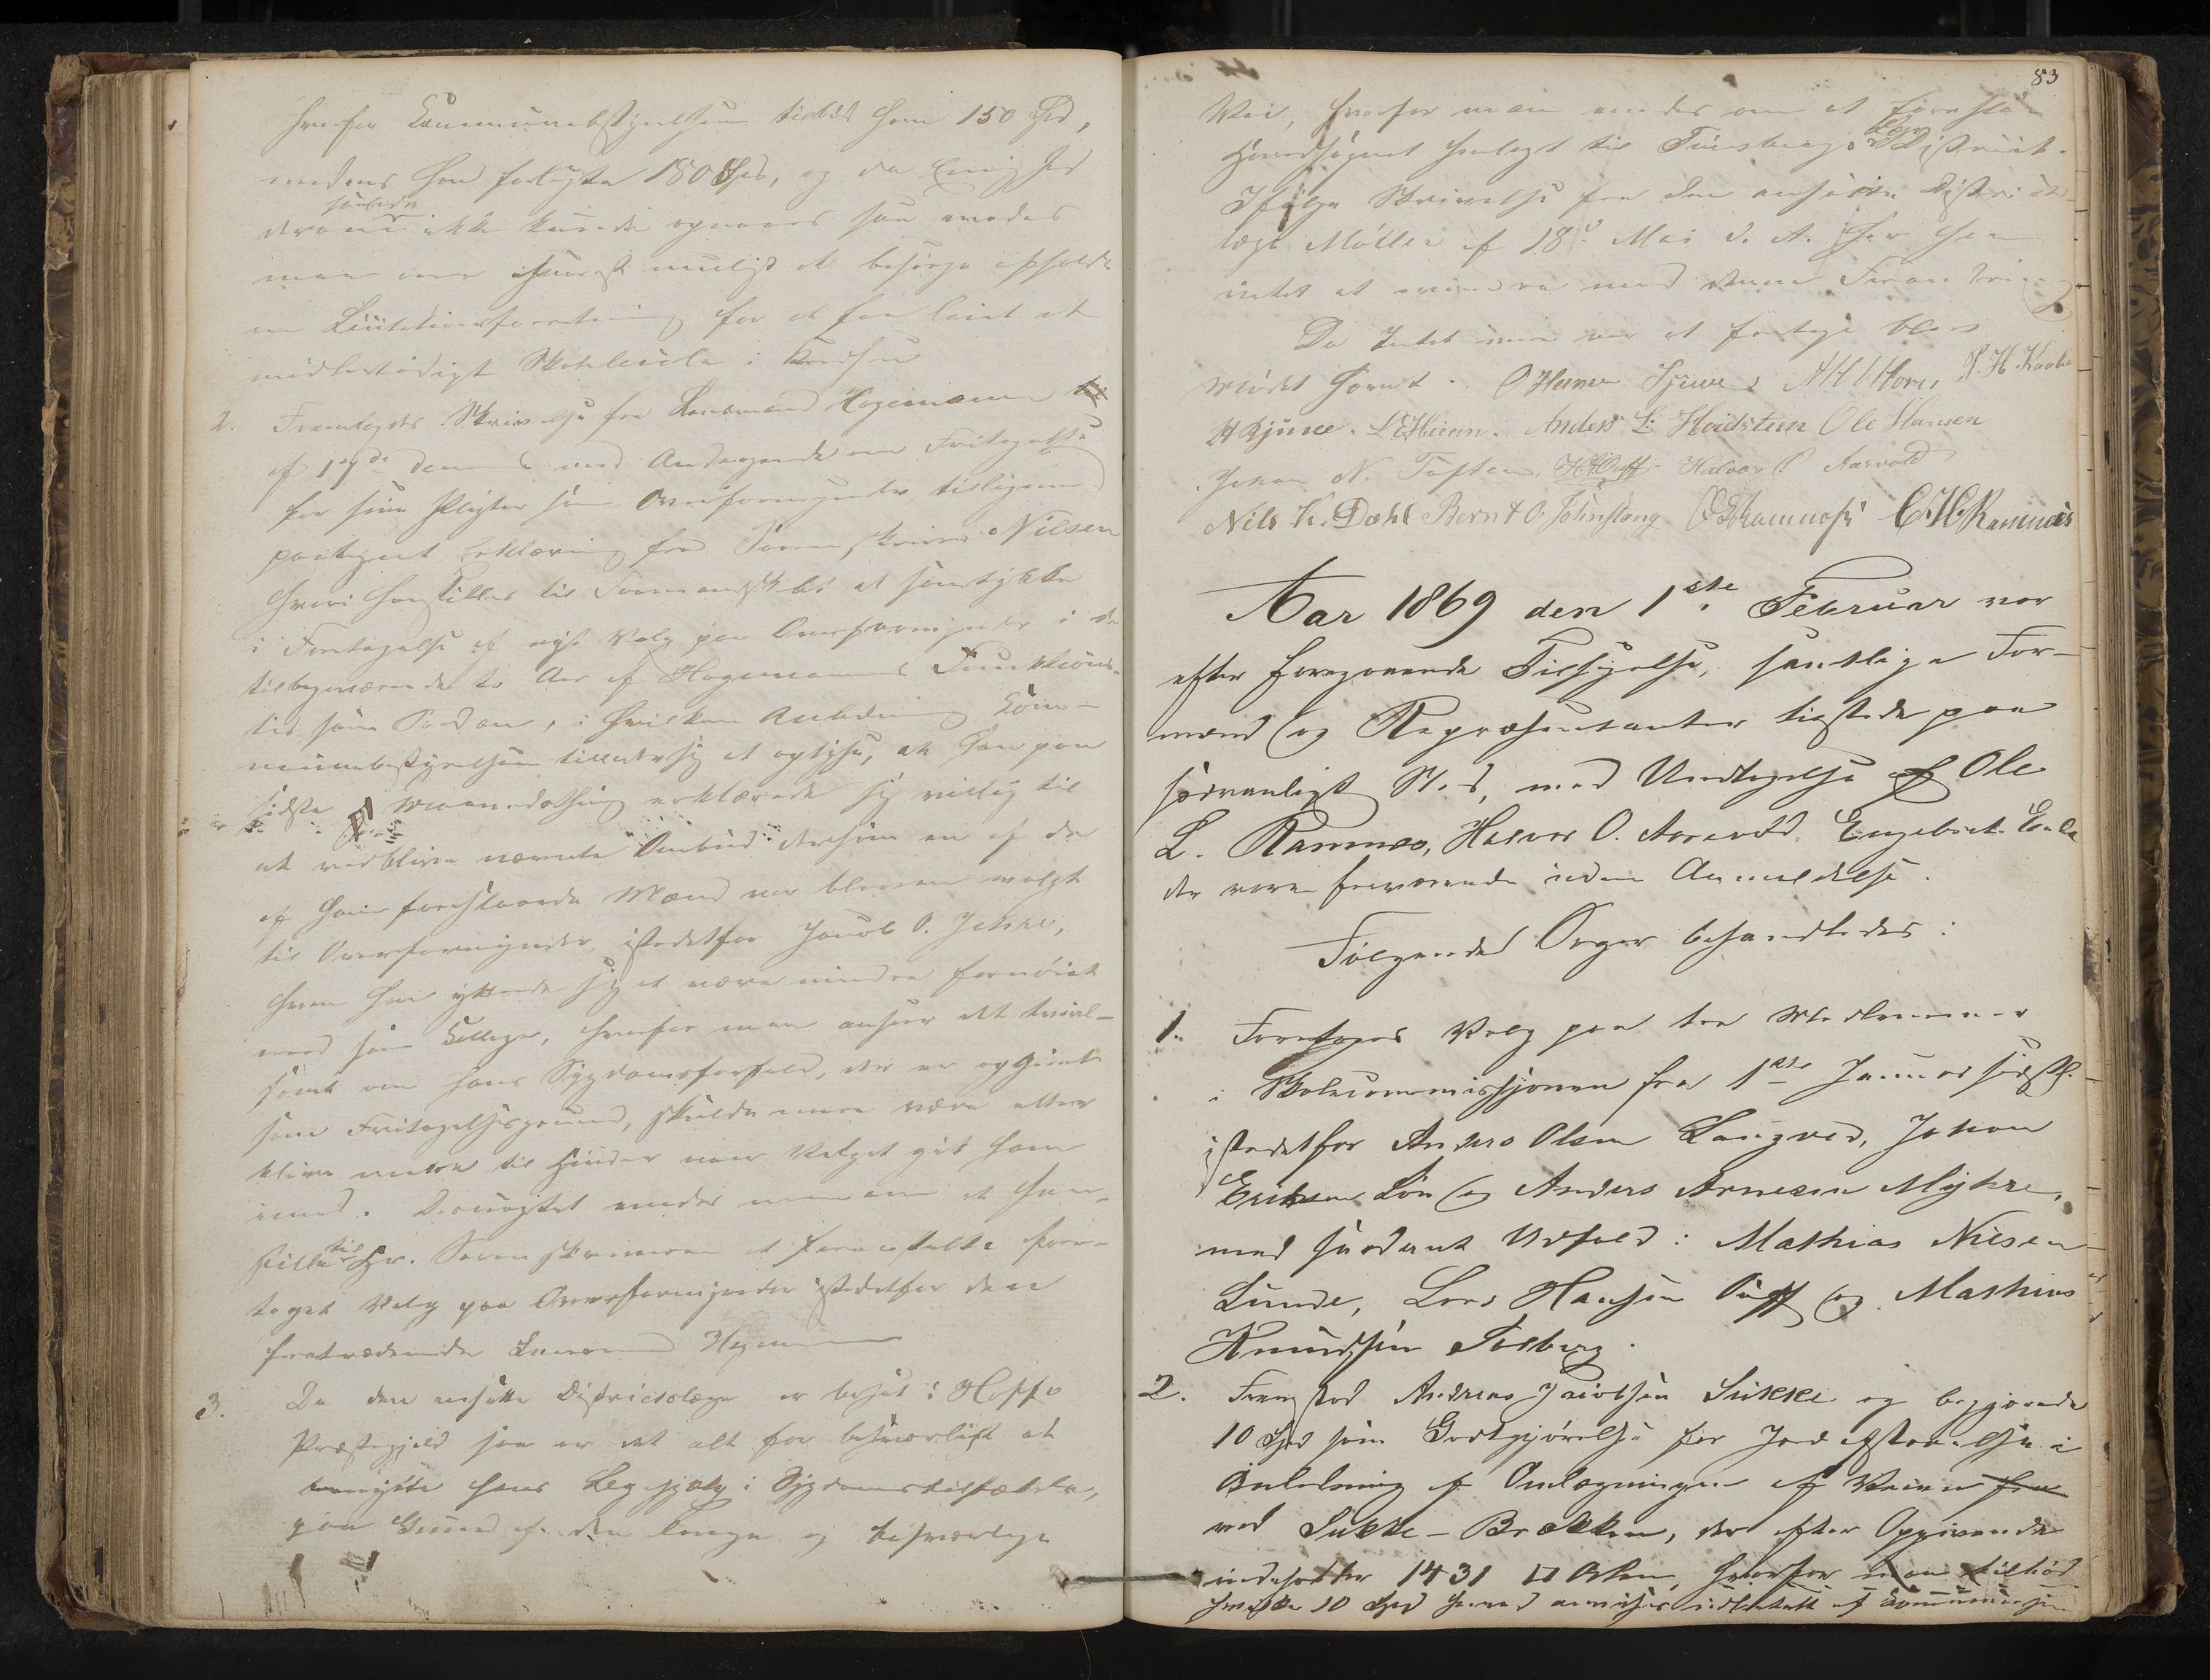 hvorfor Communebestyrelsen tilbød ham 150 Spd,
medens han forlangte 180 Spd, og da Enighed
saaledes
derom ikke kunde opnaaes saa
man om snarest muligt at besørge afholdt
en Licitationsforretning for at faa leiet et
midlertidigt Skolelocale i Kredsen
2. Fremlagdes Skrivelse fra Lensmand Hagemann
af 17de dennes med Andragende om Fritagelse
for sine Pligter som Overformynder tilligemed
paategnet Erklæring fra Sorenskriver Nilsen
hvori henstilles til Formandskabet at samtykke
i Foretagelse af nyt Valg paa Overformynder i de
tilbageværende to Aar af Hagemanns Funktions-
tid som saadan, i hvilken Anledning Com-
munebestyrelsen tillader sig at oplyse, at han paa
sidste erklærede sig villig til
at vedblive nævnte Ombud dersom en af de
af ham foreslaaede Mænd var bleven valgt
til Overformynder istedetfor Jacob O. Jahre,
hvem han yttrede sig at være mindre fornøiet
med som Collega, hvorfor man anseer det tvivl-
somt om hans Sygdomsforfald, der er opgivet
som Fritagelsesgrund, skulde være eller
blive mere til Hinder naar Valget gik ham
imod. Desuagtet man om at hen-
stille til Hr. Sorenskriveren at foranstalte fore-
taget Valg paa Overformynder istedetfor den
fratrædende Lensmand Hagemann
3. Da den ansatte Districtslæge er bosat i Hoffs
Præstegjeld saa er det alt for besværligt at
benytte hans Lægehjælp i Sygdomstilfælde,
paa Grund af den lange og besværlige
83
Vei, hvorfor man om at foreslaa
Hovedsognet henlagt til Tønsbergs Læge District.
Ifølge Skrivelse fra den ansatte Distrikts-
læge Møller af 18de Mai d. A. har han
intet at erindre mod denne Forandring
Da Intet mere var at foretage blev
Mødet hævet. O Hansen Hjuve A H Horn, P. H. Kaabe
Anders L: Hvidsteen Ole Hansen
Johan N. Toften H H Ouff Halvor O Aarvold
Nils K. Dahl Bernt O. Johnslang O. Ramnæs C. H. Ramnæs
Aar 1869 den 1ste Februar var
efter foregaaende Tilsigelse, samtlige For-
mænd og Repræsentanter tilstede paa
sædvanligt Sted, med Undtagelse af Ole
L. Ramnæs, Halvor O. Aarvold, Engebret
der vare fraværende uden Anmeldelse.
Følgende Sager behandledes:
1. Foretoges Valg paa tre Medlemmer
i Skolecommissionen fra 1ste Januar sidstl.
istedetfor Anders Olsen Langved, Johan
Eriksen Løn og Anders Arnesen Myhre,
med saadant Udfald: Mathias Nilsen
Lunde, Lars Hansen Ouff og Mathias
Knudsen Solberg.
2. Fremstod Andreas Jacobsen Sukke og begjærede
10 Spd som Godtgjørelse for Jordafstaaelse i
Anledning af Omlægningen af Veien fra
ved Sukke-Bækken, der efter Opgivende
indeholder 1431 □ Alen, hvorfor man tilbød
10 Spd udbetalt af Communekassen